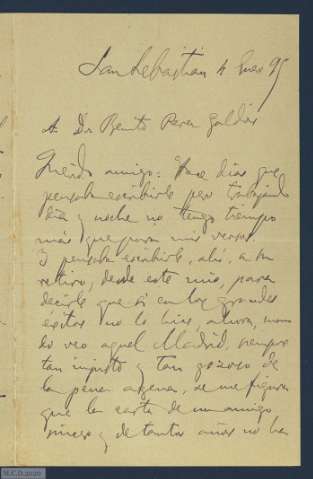 San Sebastián 4 Enero 95
A. Dn Benito Perez Galdós
Querido amigo: Hace dias que
pensaba escribirle pero trabajando
dia y noche no tengo tiempo
más que para mis versos.
Y pensaba escribirle, ahí, a su
retiro, desde este mio, para
decirle que si en los grandes
éxitos no lo hice, ahora, cuando
veo aquel Madrid, siempre
tan injusto y tan gozoso de
las penas agenas, se me figura
que la carta de un amigo
sincero y de tantos años no ha